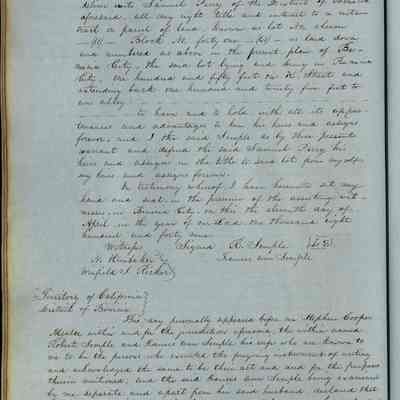 deliver unto Samuel Perry of the District of
aforesaid, all my right title and interest to a certain
tract or parcel of land, known as lot No. eleven
-11- Block No. forty one -41- as laid down
and numbered as above in the present plan of Be-
nicia City, the said lot lying and being in Benicia
City. One hundred and fifty feet on K Street and
extending back one hundred and twenty five feet to
an alley.
to have and to hold with all its appur-
tenances and advantages to him his heirs and assigns
forever, and I the said Semple do by these presents
warrant and defend the said Samuel Perry his
heirs and assigns in the title to said lot from myself
my heirs and assigns forever.
In testimony whereof, I have hereunto set my
hand and seal, in the presence of the assisting wit-
nesses, in Benicia City, on this the eleventh day of
April in the year of our Lord One thousand eight
hundred and forty nine
Witness Signed R. Semple
N. Frances Ann Semple
Winfield S.
Territory of California
District of Benicia
Personally appeared before me Stephen Cooper
within and for the jurisdiction aforesaid, the within named
Robert Semple and Frances Ann Semple his wife who are known to
me to be the persons who executed the foregoing instrument of writing
and acknowledged the same to be their act and deed for the purposes
therein mentioned, and the said Frances Ann Semple being examined
by me separate and apart from her said husband declared that